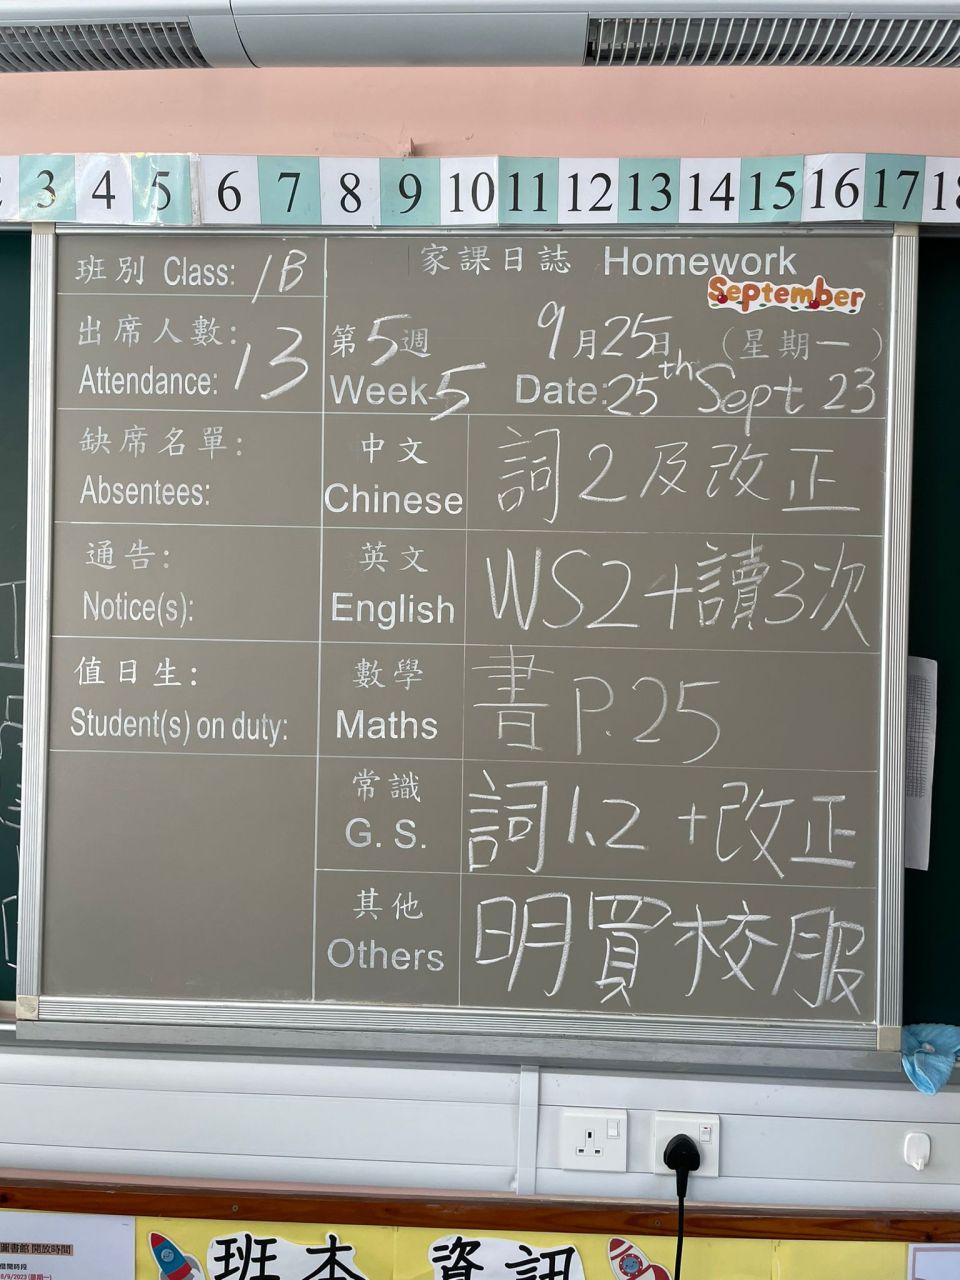 3 4 5 6 7 8 9 10 11 12 13 14 15 16 17 18
班別 Class: 1B
家課日誌 Homework
September
出席人數:
Attendance: 13
第5週 9月25日 (星期一)
Week 5 Date: 25th Sept 23
缺席名單:
Absentees:
中文
Chinese
詞2及改正
通告:
Notice(s):
英文
English
WS2+讀3次
值日生:
Student(s) on duty:
數學
Maths
書P.25
常識
G. S.
詞1,2 +改正
其他
Others
明買校服
圖書館 開放時間
借閱時段
班本 資訊